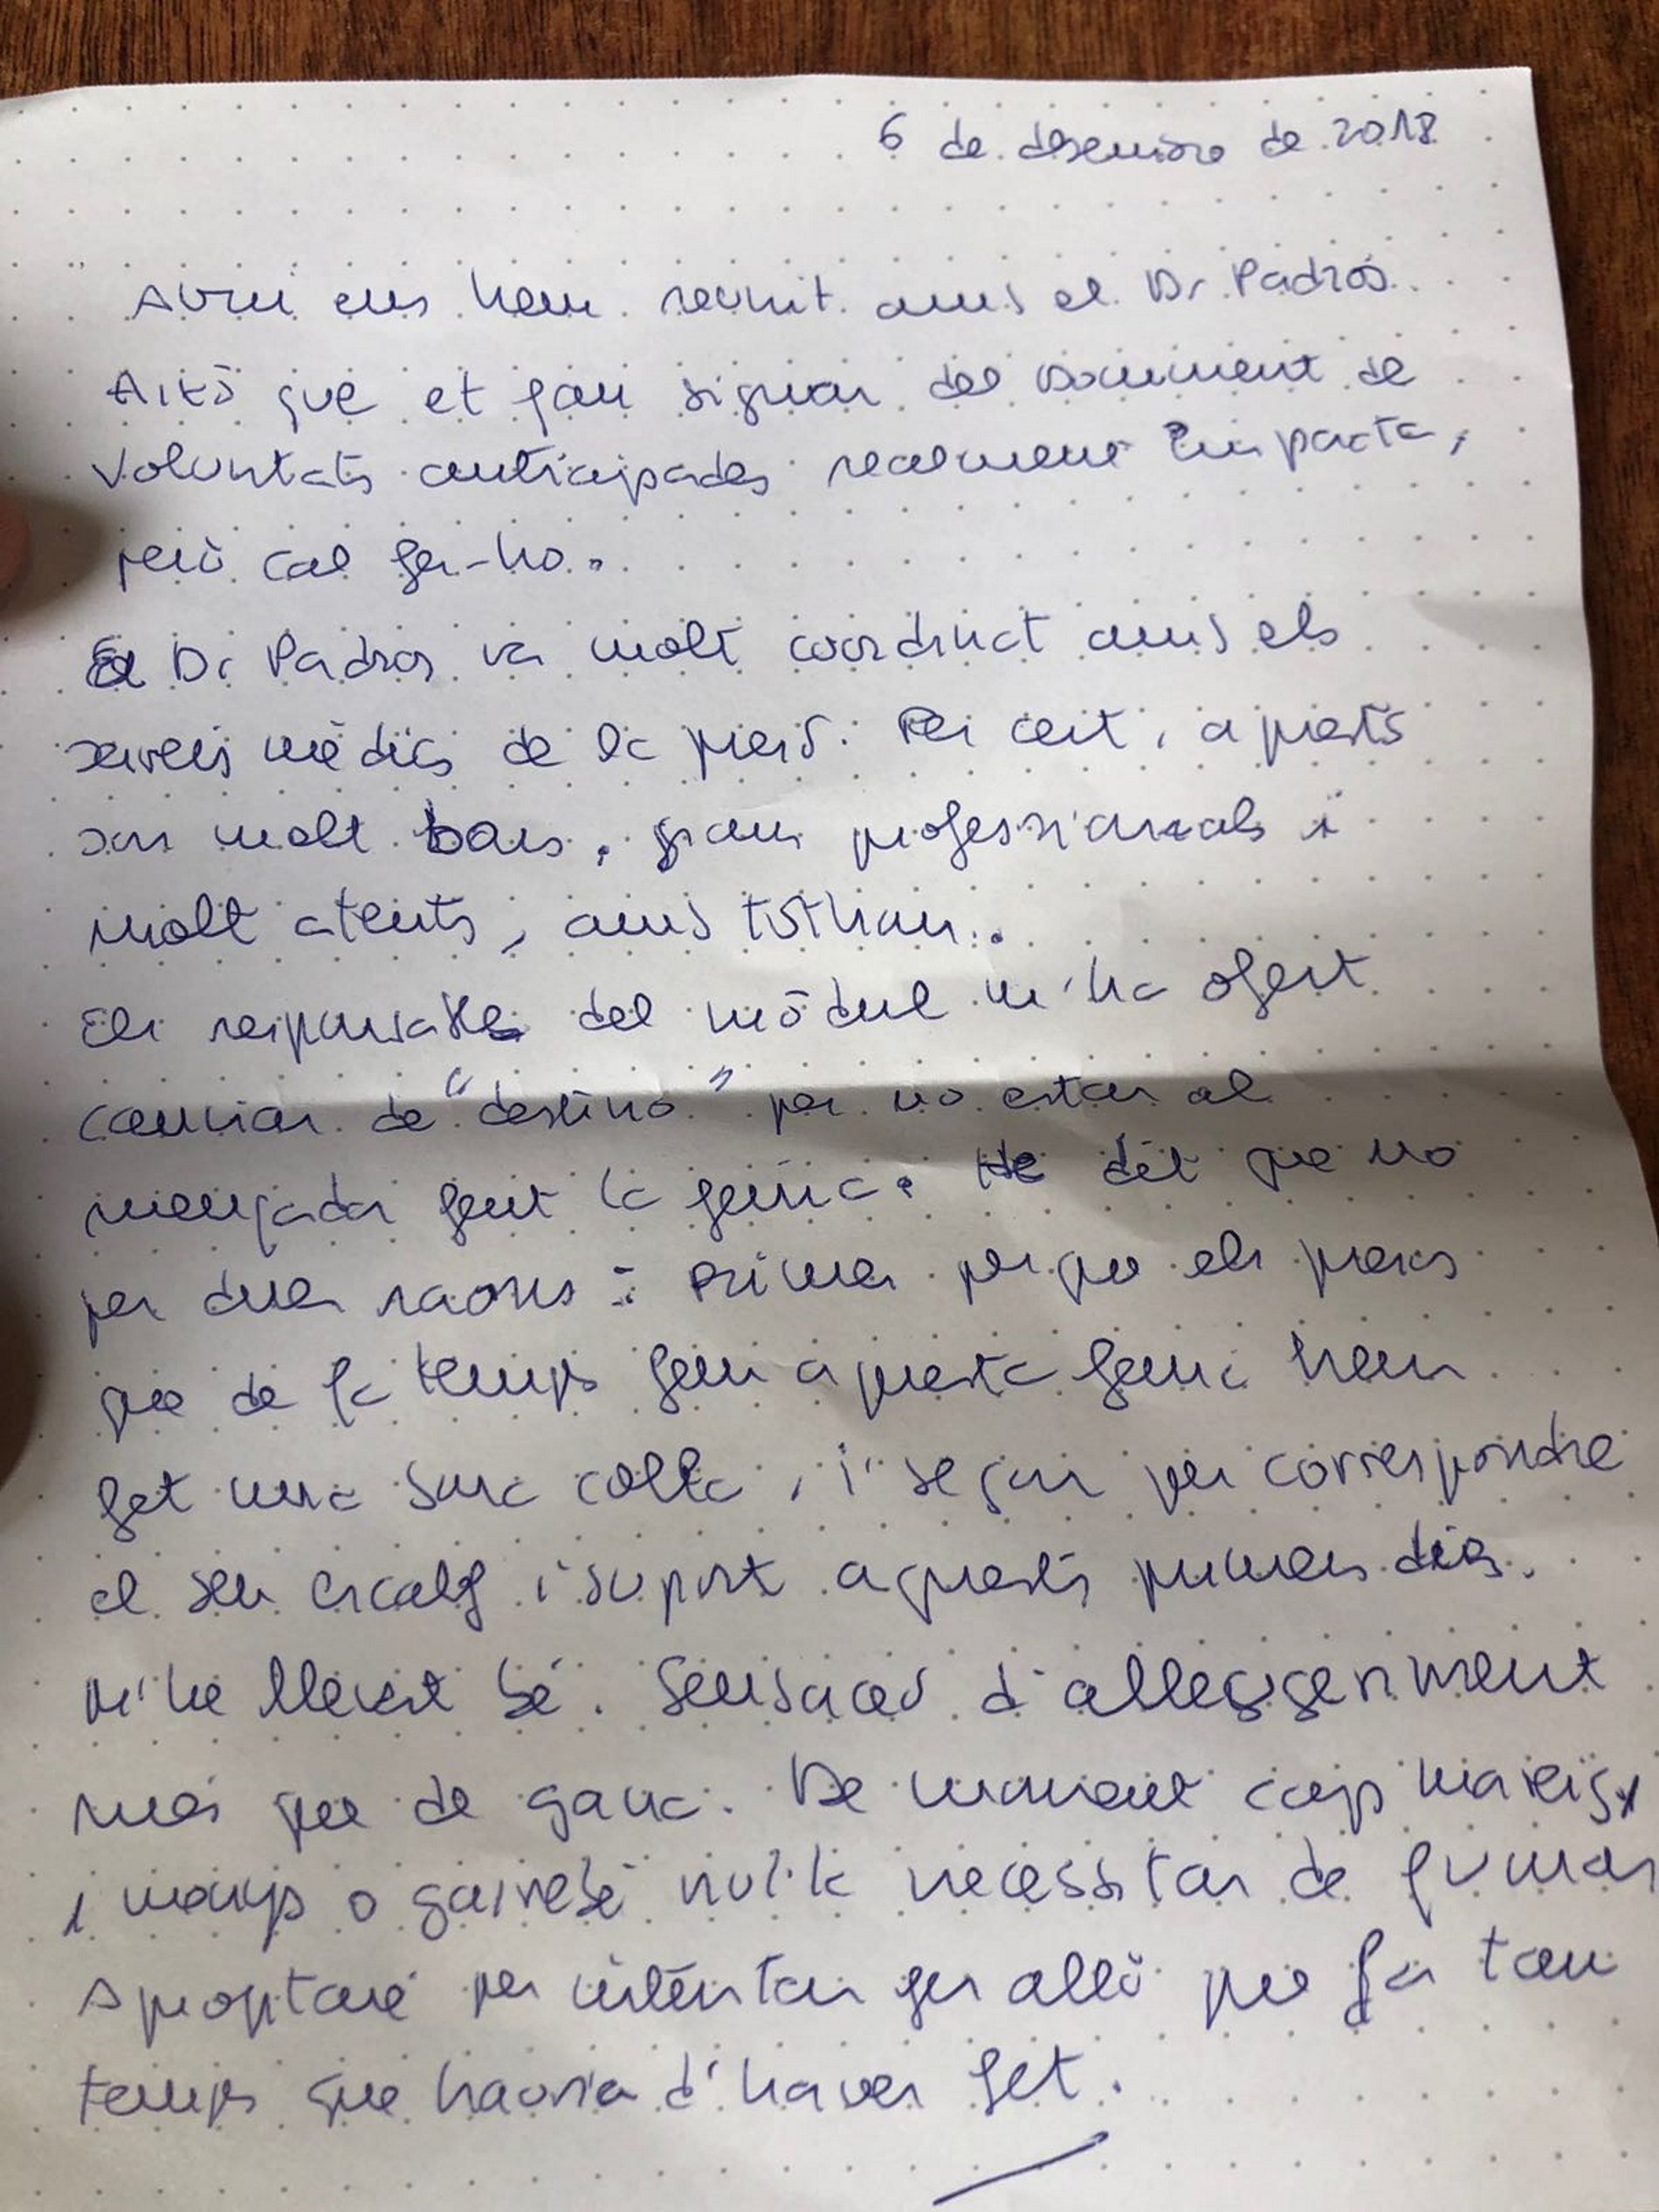 6 de desembre de 2018
Avui ens hem reunit amb el Dr. Padrós.
Això que et fan signar del Document de
Voluntats anticipades realment impacta,
però cal fer-ho.
El Dr Padros va molt coordinat amb els
serveis mèdics de la presó. Per cert, aquests
son molt bons, grans professionals i
molt atents, amb tothom.
Els responsables del mòdul m'ha ofert
canviar de "destino" per no estar al
menjador fent la feina. He dit que no
per dues raons: Primer perque els presos
que de fa temps fem aquesta feina hem
fet una bona colla, i segon per correspondre
el seu escalf i suport aquests primers dies.
M'he llevat bé. Sensació d'alleggeriment
més que de gana. De moment cap mareig,
i menys o gairebé nul·la necessitar de fumar
Aprofitaré per intentar fer allò que fa tan
temps que hauria d'haver fet.